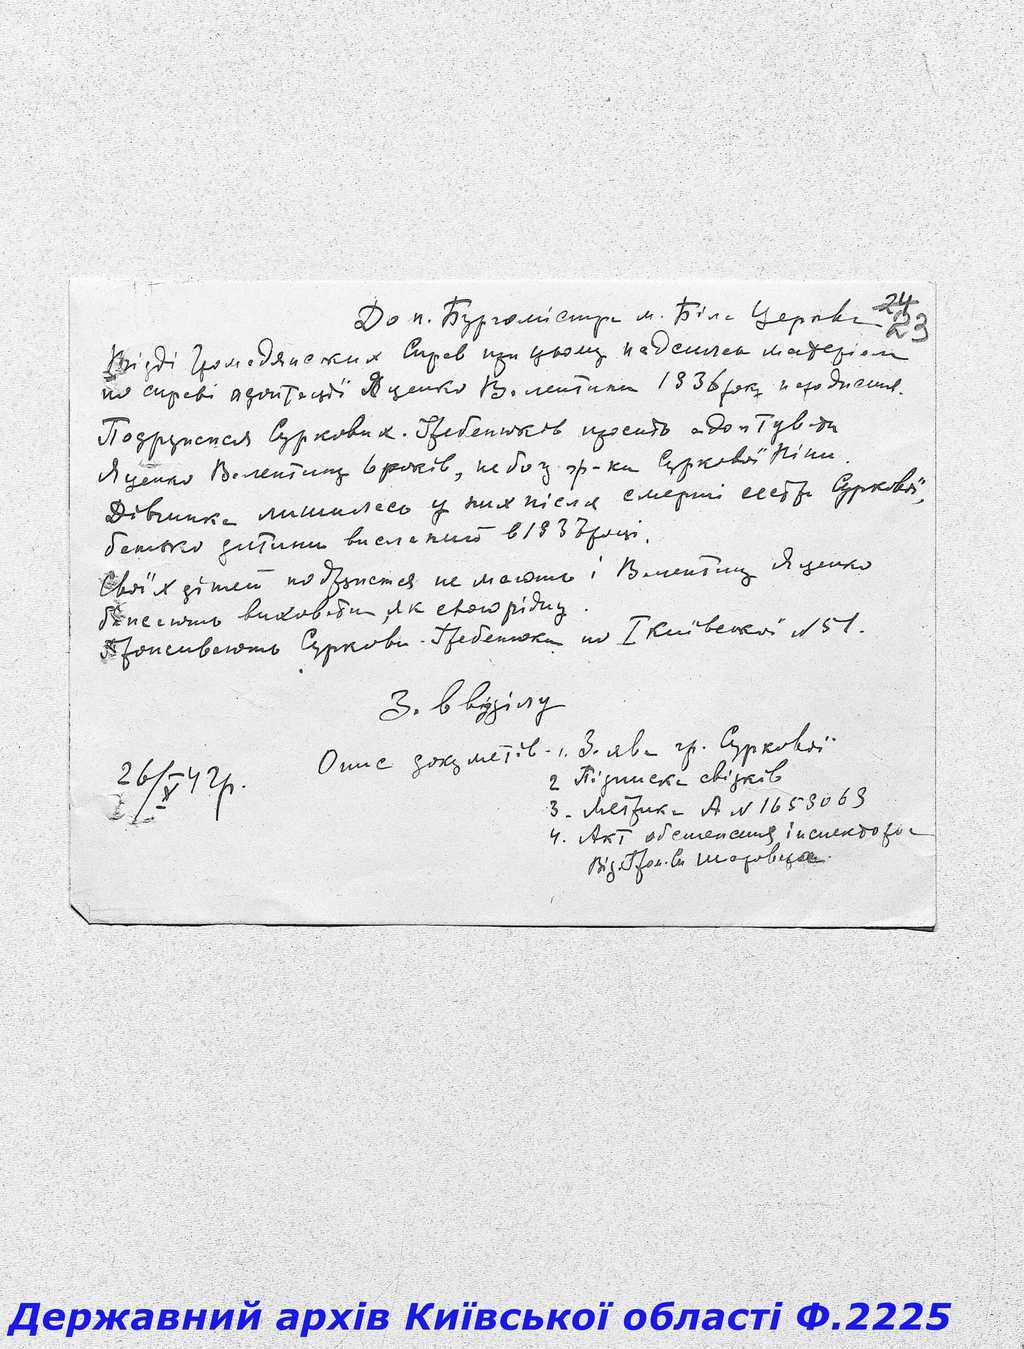 24
23
До п. Бургомістра м. Біла Церква
Відді Громадянських Справ при цьому надсилає матеріали
по справі адоптації Яценко Валентини 1936 року народження.
Подружжя Суркових-Гребенюків просить адоптувати
Яценко Валентину 6 років, небогу гр-ки Суркової Ніни.
Дівчинка лишилась у них після смерті сестри Суркової,
батько дитини висланий в 1937 році.
Своїх дітей подружжя не мають і Валентину Яценко
бажають виховати, як свою рідну.
Проживають Суркови-Гребенюки по І Київській N 51.
З. в відділу
26/IV 42р.
Опис документів - 1. Заява гр. Суркової
2 Підписка свідків
3. Метрика А N 1653063
4. Акт обстеження інспектора
Від.
Державний архів Київської області Ф.2225